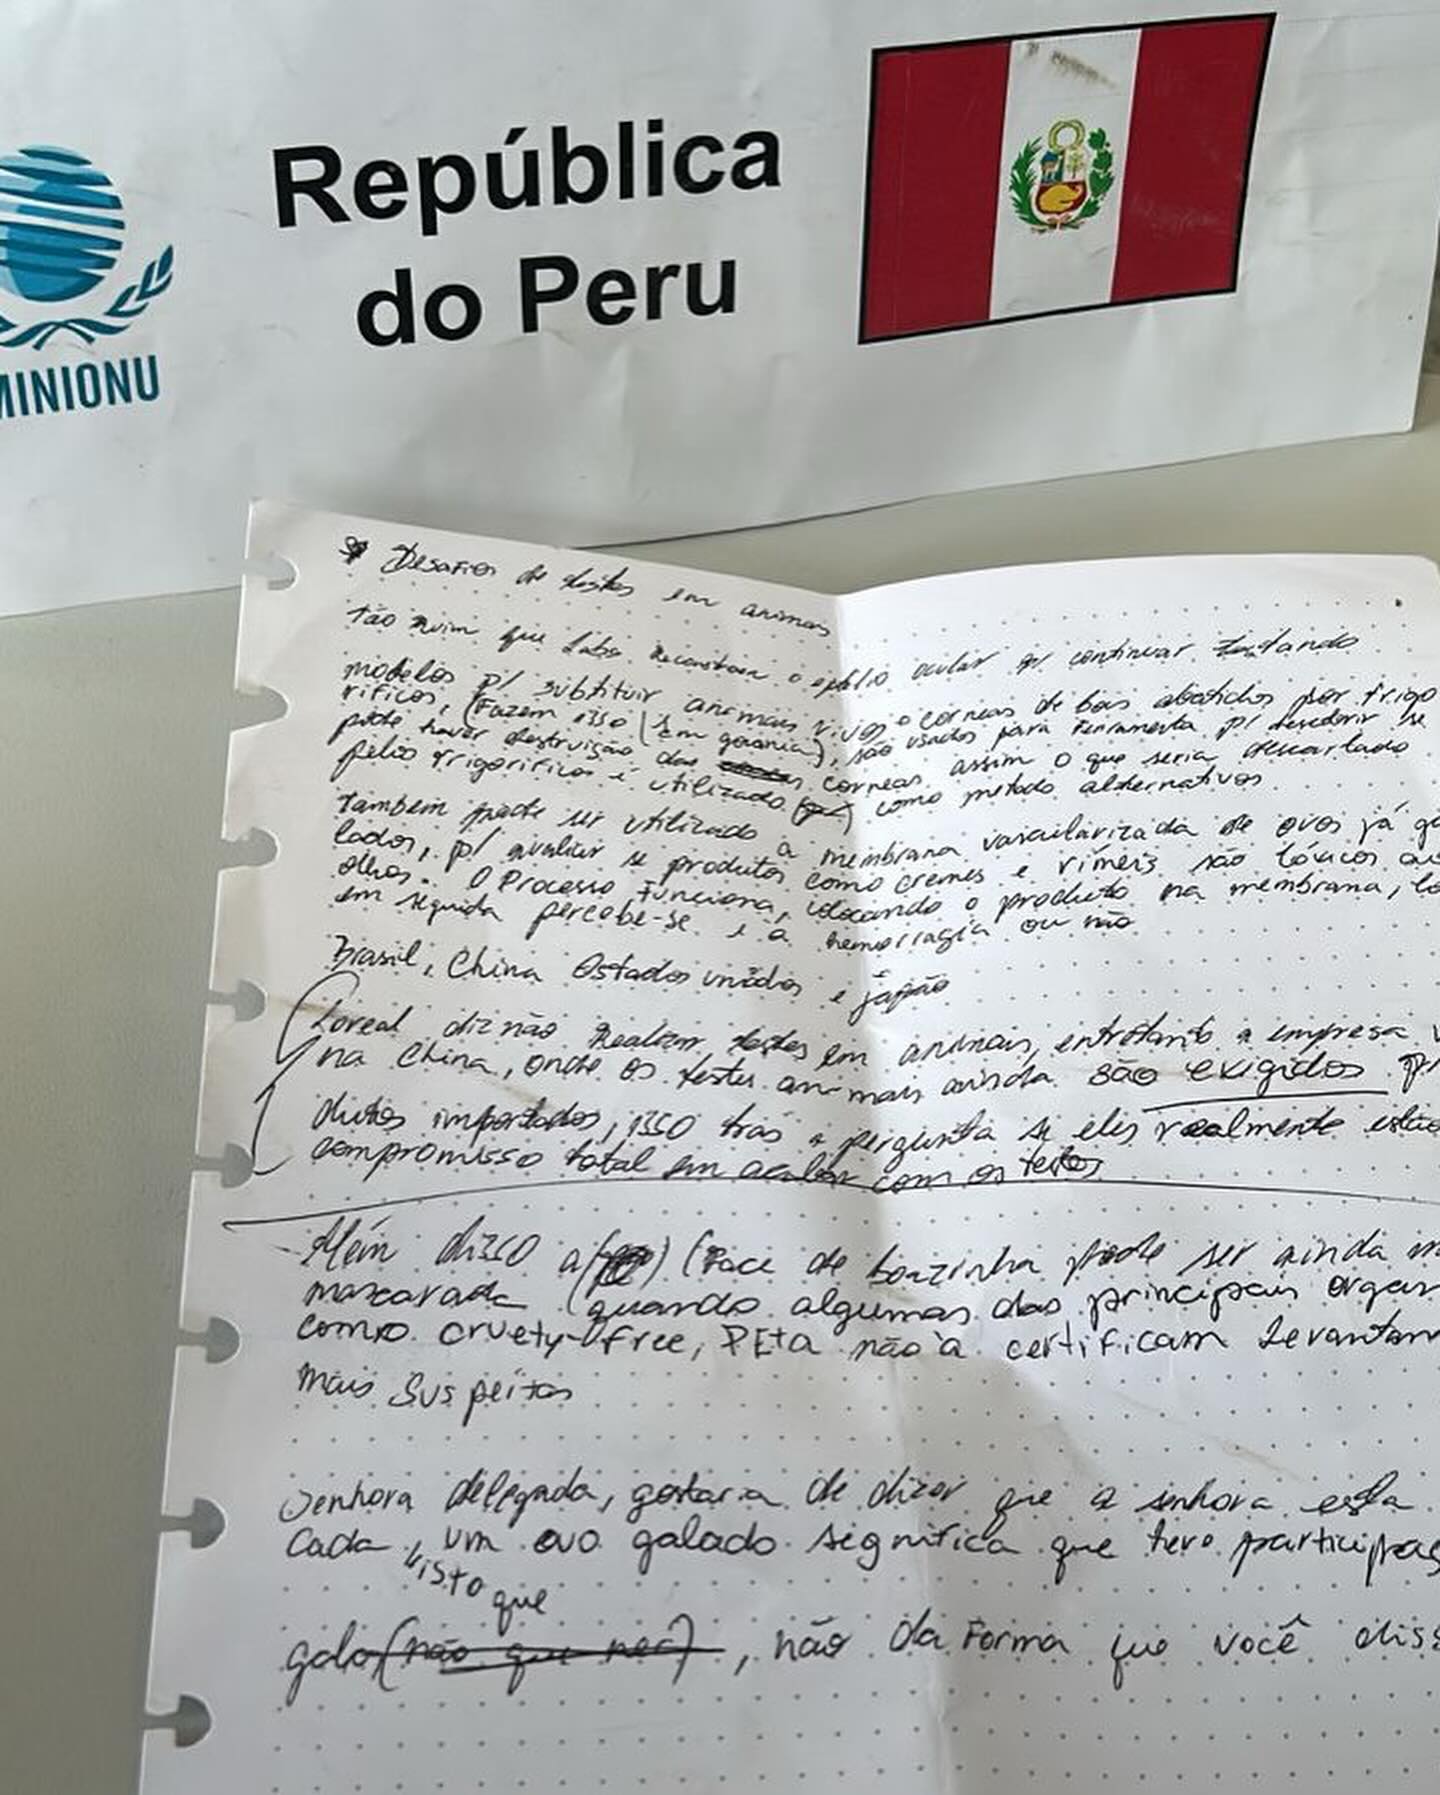 República
do Peru
MINIONU
Desafios de testes em animais
tão ruim que labs. reconstroem o epitélio ocular p/ continuar testando
modelos p/ substituir animais vivos córneas de bois abatidos por frigo
ríficos, (Fazem isso (em goiania), são usados para Ferramenta p/ descobrir se
pode haver destruição das córneas, assim o que seria descartado
pelos frigoríficos é utilizado como metodo alternativos
também pode ser utilizado a membrana vascularizada de ovos já ga
lados, p/ avaliar se produtos como cremes e rímeis são tóxicos aos
olhos. O Processo Funciona, colocando o produto na membrana,
em seguida percebe-se a hemorragia ou não
Brasil, China Estados unidos e japão
Loreal diz não Realizar testes em animais, entretanto a empresa v
na China, onde os testes animais ainda são exigidos pr
dutos importados, isso trás a pergunta se eles realmente estão
compromisso total em acabar com os testes
Além disso a (Face de boazinha pode ser ainda m
mascarada (quando algumas das principais organ
como cruety-free, PEta não a certificam Levantan
mais suspeitas
Senhora delegada, gostaria de dizer que a senhora esta
cada, um ovo galado significa que teve participaç
visto que
galo (não que ner), não da Forma que você diss